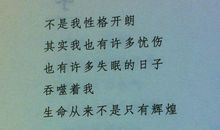 不是我性格开朗
其实我也有许多忧伤
也有许多失眠的日子
吞噬着我
生命从来不是只有辉煌